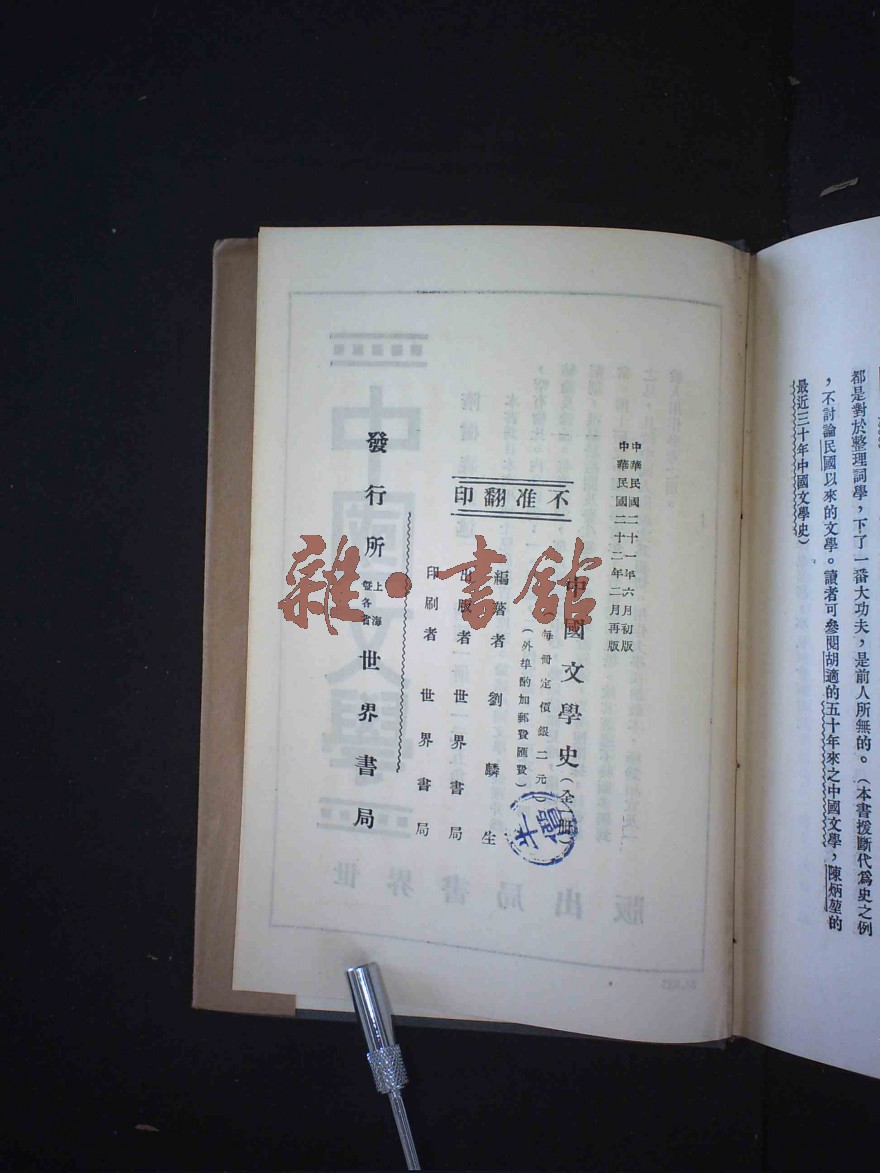 都是對於整理詞學，下了一番大功夫，是前人所無的。（本書援斷代爲史之例
，不討論民國以來的文學。讀者可參閱胡適的五十年來之中國文學，陳炳堃的
最近三十年中國文學史）
中華民國二十一年六月初版
中華民國二十二年二月再版
中國文學史（全一冊）
（每冊定價銀二元）
（外埠酌加郵費匯費）
不准翻印
編著者 劉麟生
出版者 世界書局
印刷者 世界書局
發行所 上海暨各省 世界書局
半價
雜·書館